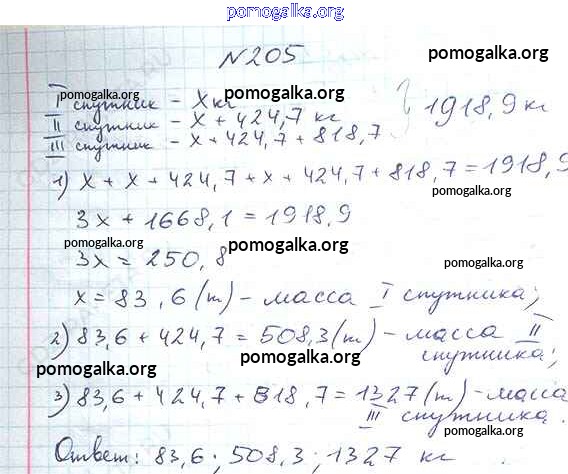 pomogalka.org
№205
pomogalka.org
I спутник - x кг
pomogalka.org
II спутник - x + 424,7 кг
pomogalka.org
1918,9 кг
III спутник - x + 424,7 + 818,7
pomogalka.org
1) x + x + 424,7 + x + 424,7 + 818,7 = 1918,9
pomogalka.org
pomogalka.org
3x + 1668,1 = 1918,9
pomogalka.org
pomogalka.org
3x = 250,8
pomogalka.org
x = 83,6 (т) - масса I спутника;
2) 83,6 + 424,7 = 508,3 (т) - масса II
спутника;
pomogalka.org
pomogalka.org
3) 83,6 + 424,7 + 818,7 = 1327 (т) - масса
III спутника.
pomogalka.org
pomogalka.org
Ответ: 83,6; 508,3; 1327 кг
pomogalka.org